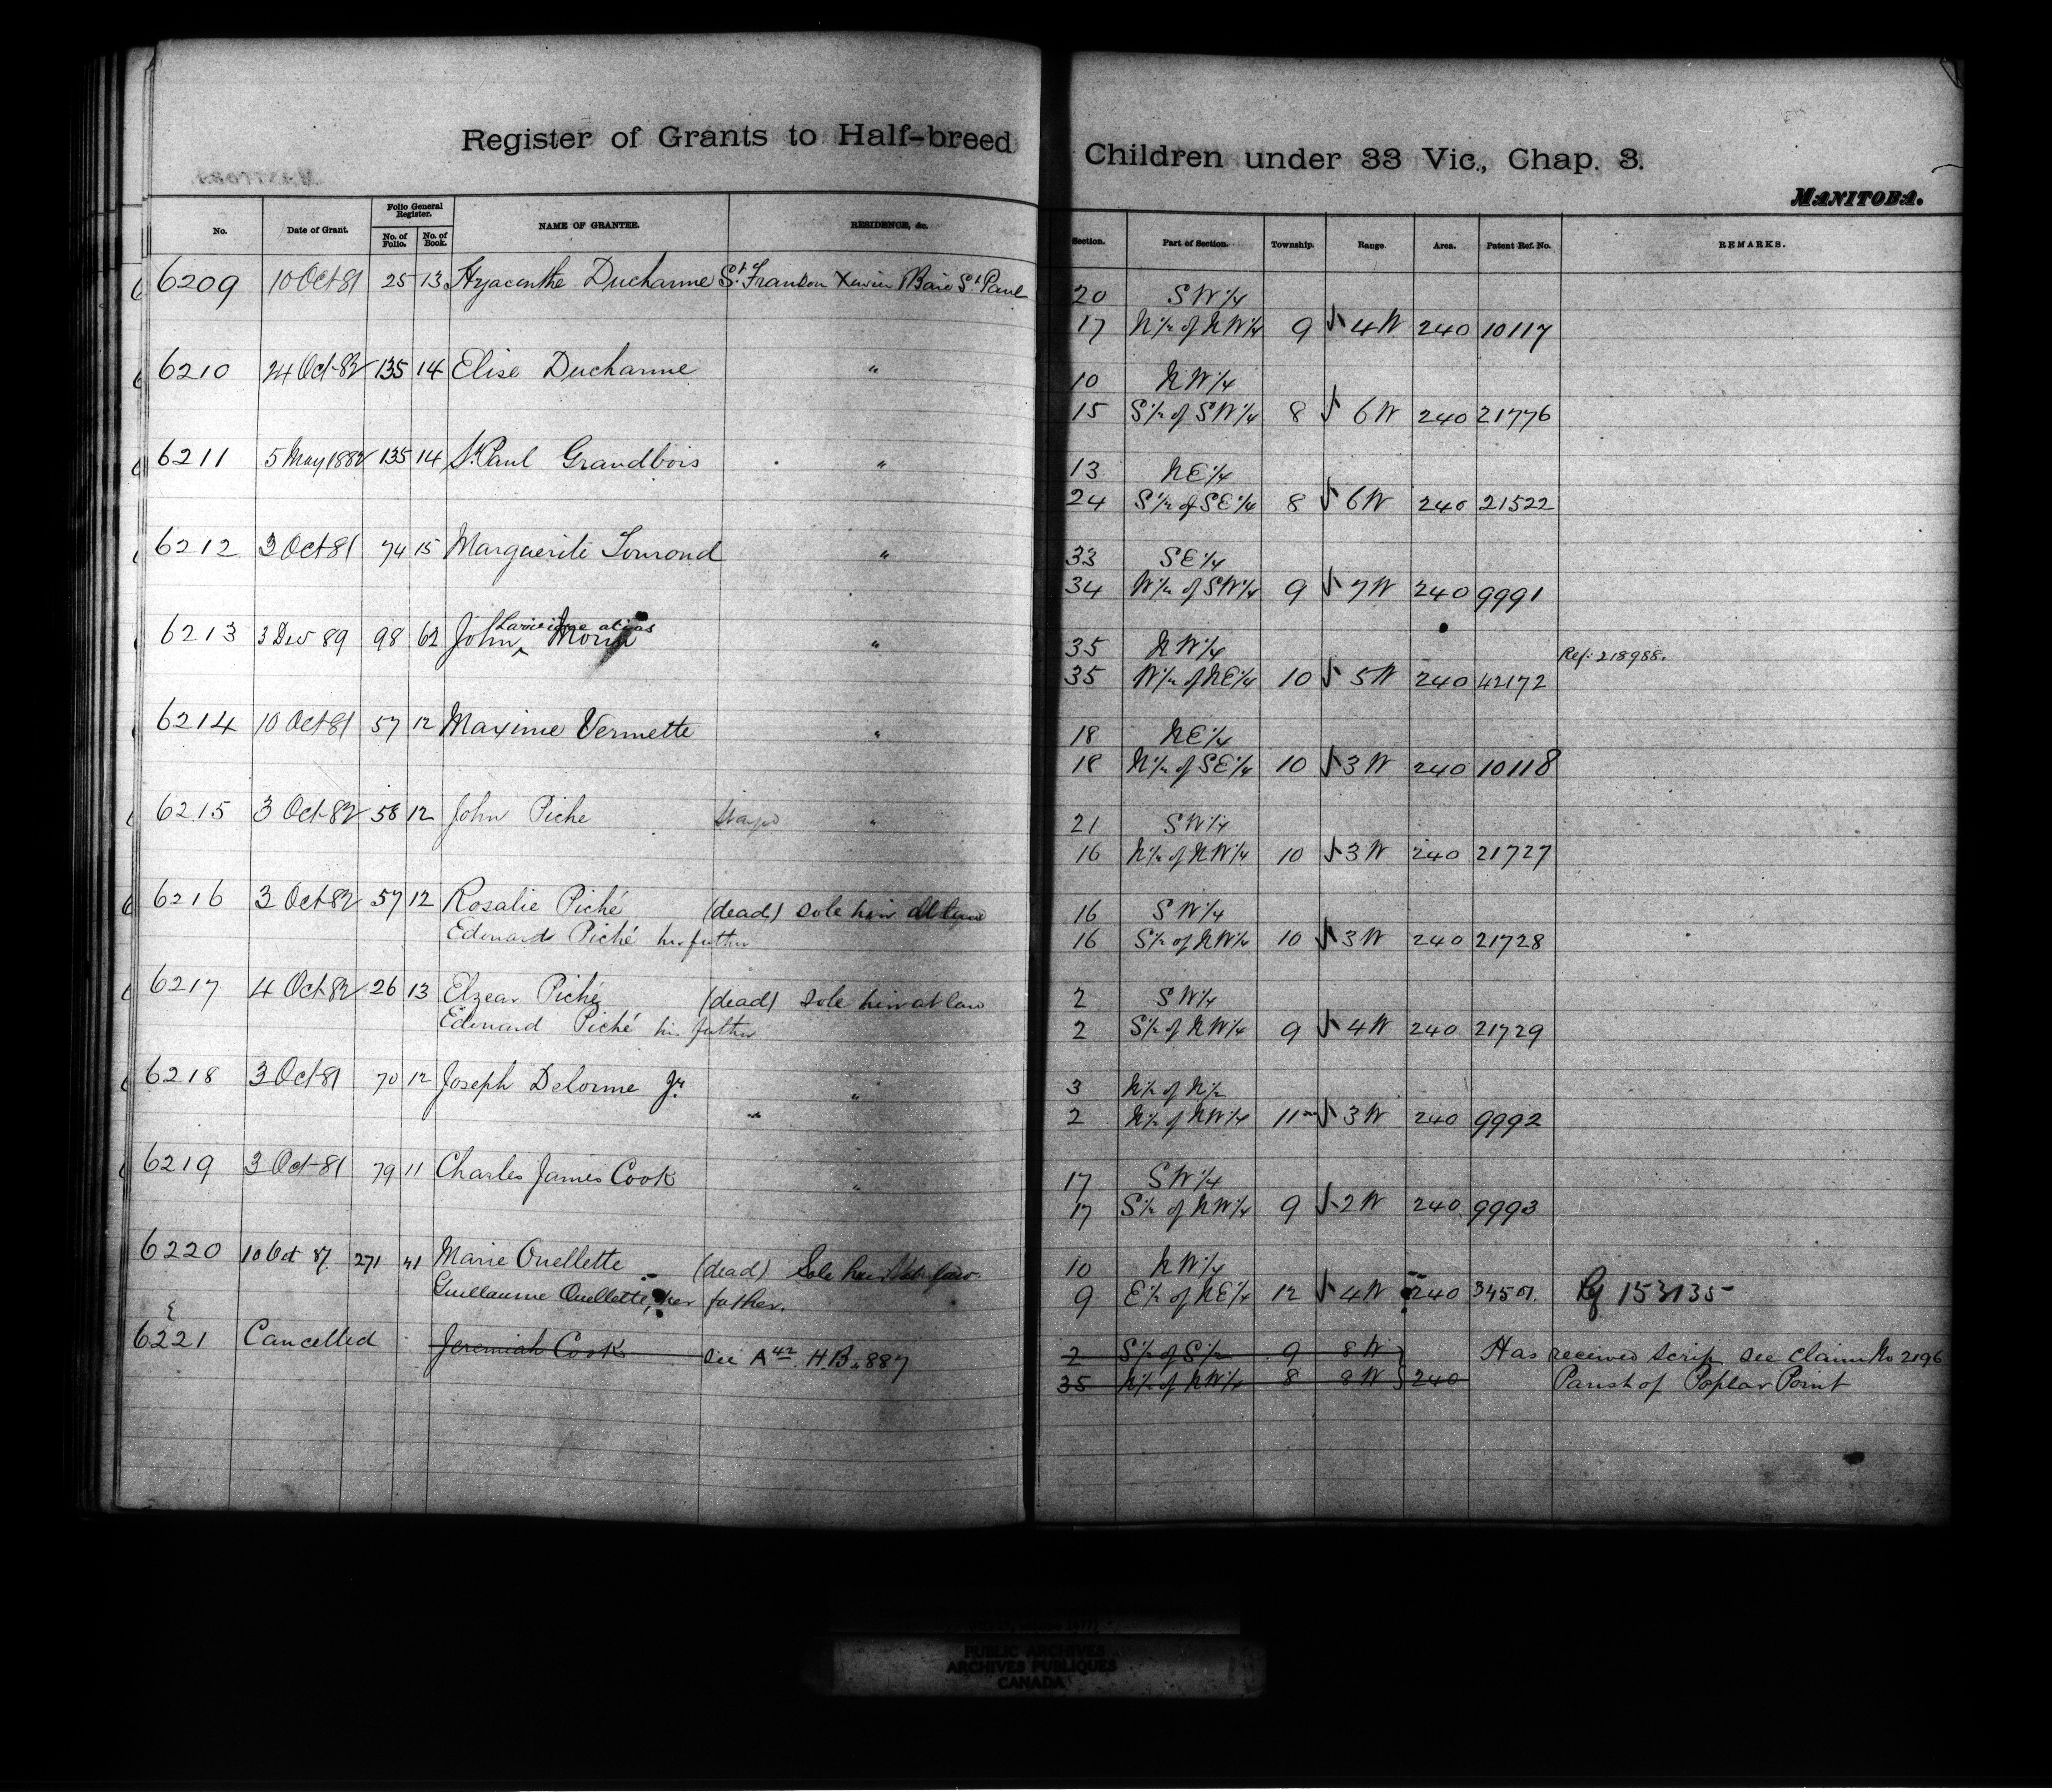 Register of Grants to Half-breed Children under 33 Vic., Chap. 3.
MANITOBA.
No. Date of Grant. Folio General Register. No. of Folio. No. of Book. NAME OF GRANTEE. RESIDENCE, &c. Section. Part of Section. Township. Range. Area. Patent Ref. No. REMARKS.
6209 10 Oct 81 25 13 Hyacinthe Ducharme St. Xavier Baie St Paul 20 SW 1/4
17 N 1/2 of NW 1/4 9 4 W 240 10117
6210 24 Oct 82 135 14 Elise Ducharme " 10 NW 1/4
15 S 1/2 of SW 1/4 8 6 W 240 21776
6211 5 May 1882 135 14 St Paul Grandbois " 13 NE 1/4
24 S 1/2 of SE 1/4 8 6 W 240 21522
6212 3 Oct 81 74 15 Marguerite Lourond " 33 SE 1/4
34 W 1/2 of SW 1/4 9 7 W 240 9991
6213 3 Dec 89 98 62 John Larivière alias Morin " 35 NW 1/4
35 W 1/2 of NE 1/4 10 5 W 240 42172 Ref: 218988.
6214 10 Oct 81 57 12 Maxime Vermette " 18 NE 1/4
18 N 1/2 of SE 1/4 10 3 W 240 10118
6215 3 Oct 82 58 12 John Piche " 21 SW 1/4
16 N 1/2 of NW 1/4 10 3 W 240 21727
6216 3 Oct 82 57 12 Rosalie Piché (dead) Sole heir at law 16 SW 1/4
Edouard Piché her father 16 S 1/2 of NW 1/4 10 3 W 240 21728
6217 4 Oct 82 26 13 Elzear Piché (dead) Sole heir at law 2 SW 1/4
Edouard Piché his father 2 S 1/2 of NW 1/4 9 4 W 240 21729
6218 3 Oct 81 70 12 Joseph Delorme Jr. " 3 N 1/2 of N 1/2
" 2 N 1/2 of NW 1/4 11 3 W 240 9992
6219 3 Oct 81 79 11 Charles James Cook " 17 SW 1/4
17 S 1/2 of NW 1/4 9 2 W 240 9993
6220 10 Oct 87 271 41 Marie Ouellette (dead) Sole heir at law 10 NW 1/4
Guillaume Ouellette, her father. 9 E 1/2 of NE 1/4 12 4 W 240 34501. Rf 153135
6221 Cancelled Jeremiah Cook see A 42. H.B. 887 2 S 1/2 of S 1/2 9 8 W Has received scrip see claim No 2196
35 N 1/2 of NW 1/4 8 8 W 240 Parish of Poplar Point
PUBLIC ARCHIVES
ARCHIVES PUBLIQUES
CANADA